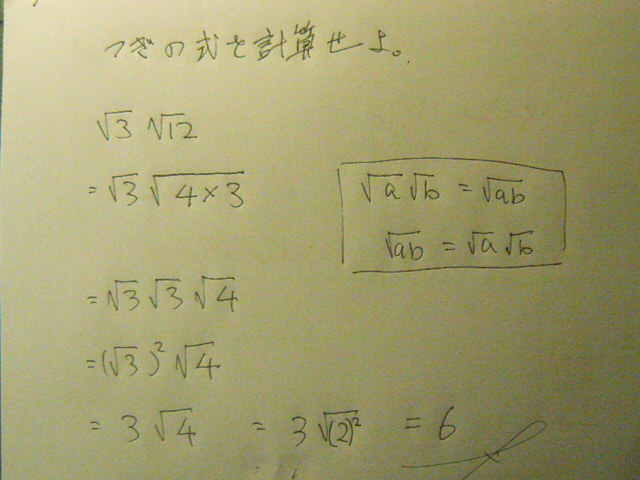 つぎの式を計算せよ。
√3 √12
= √3 √4×3
√a √b = √ab
√ab = √a √b
= √3 √3 √4
= (√3)² √4
= 3 √4 = 3 √(2)² = 6